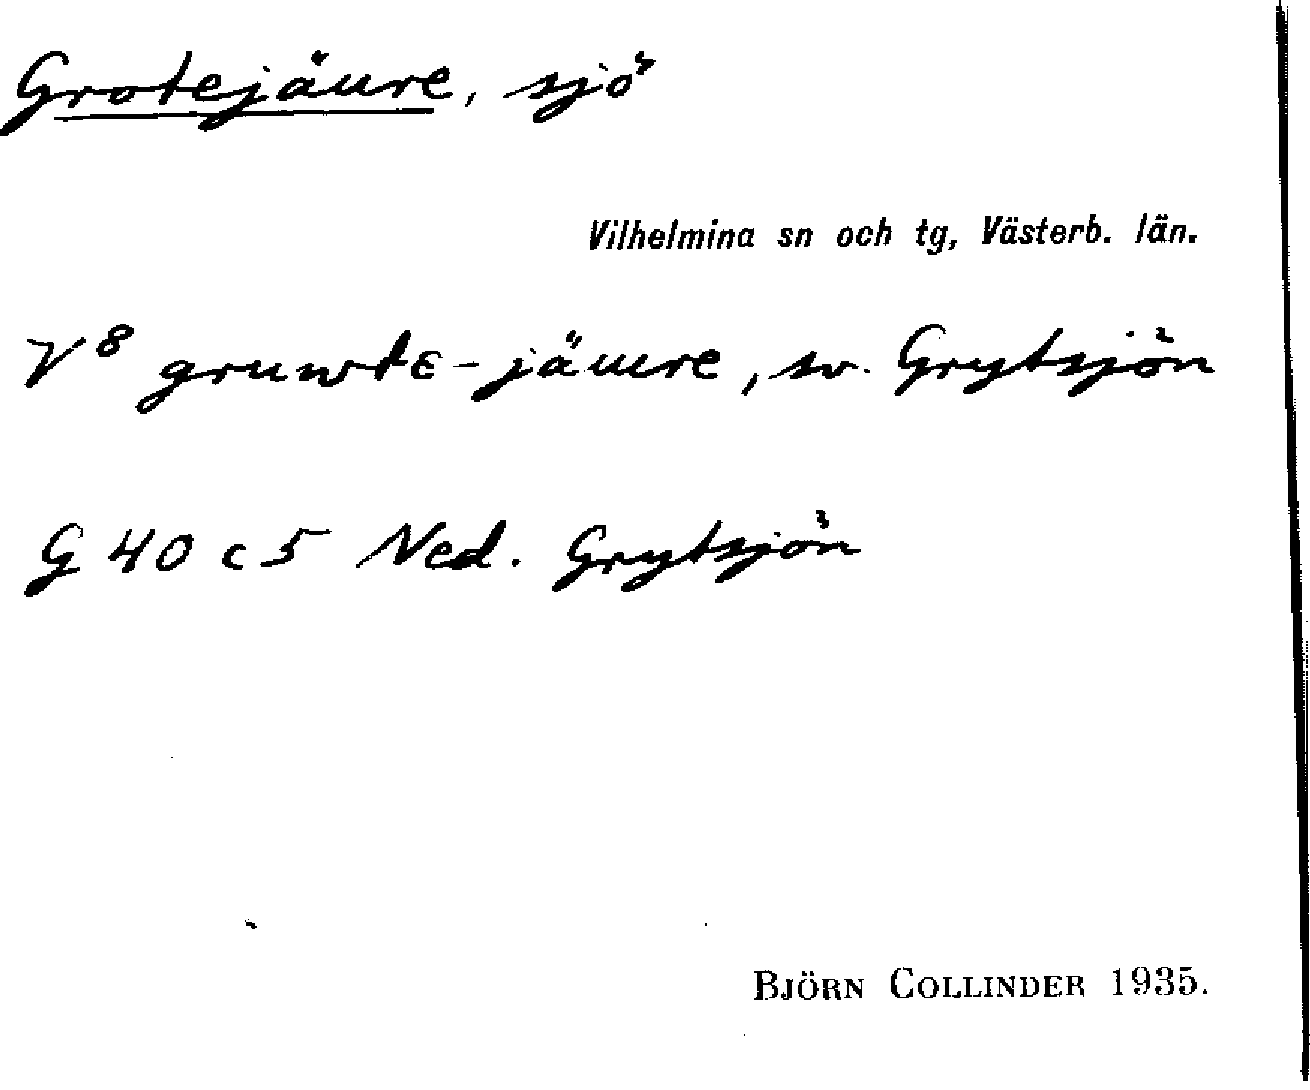 Grotejäure, sjö
Vilhelmina sn och tg, Västerb. län.
V⁸ gruwtɛ-jäuure, sv. Grytsjön
G 40 c 5 Ned. Grytsjön
BJÖRN COLLINDER 1935.